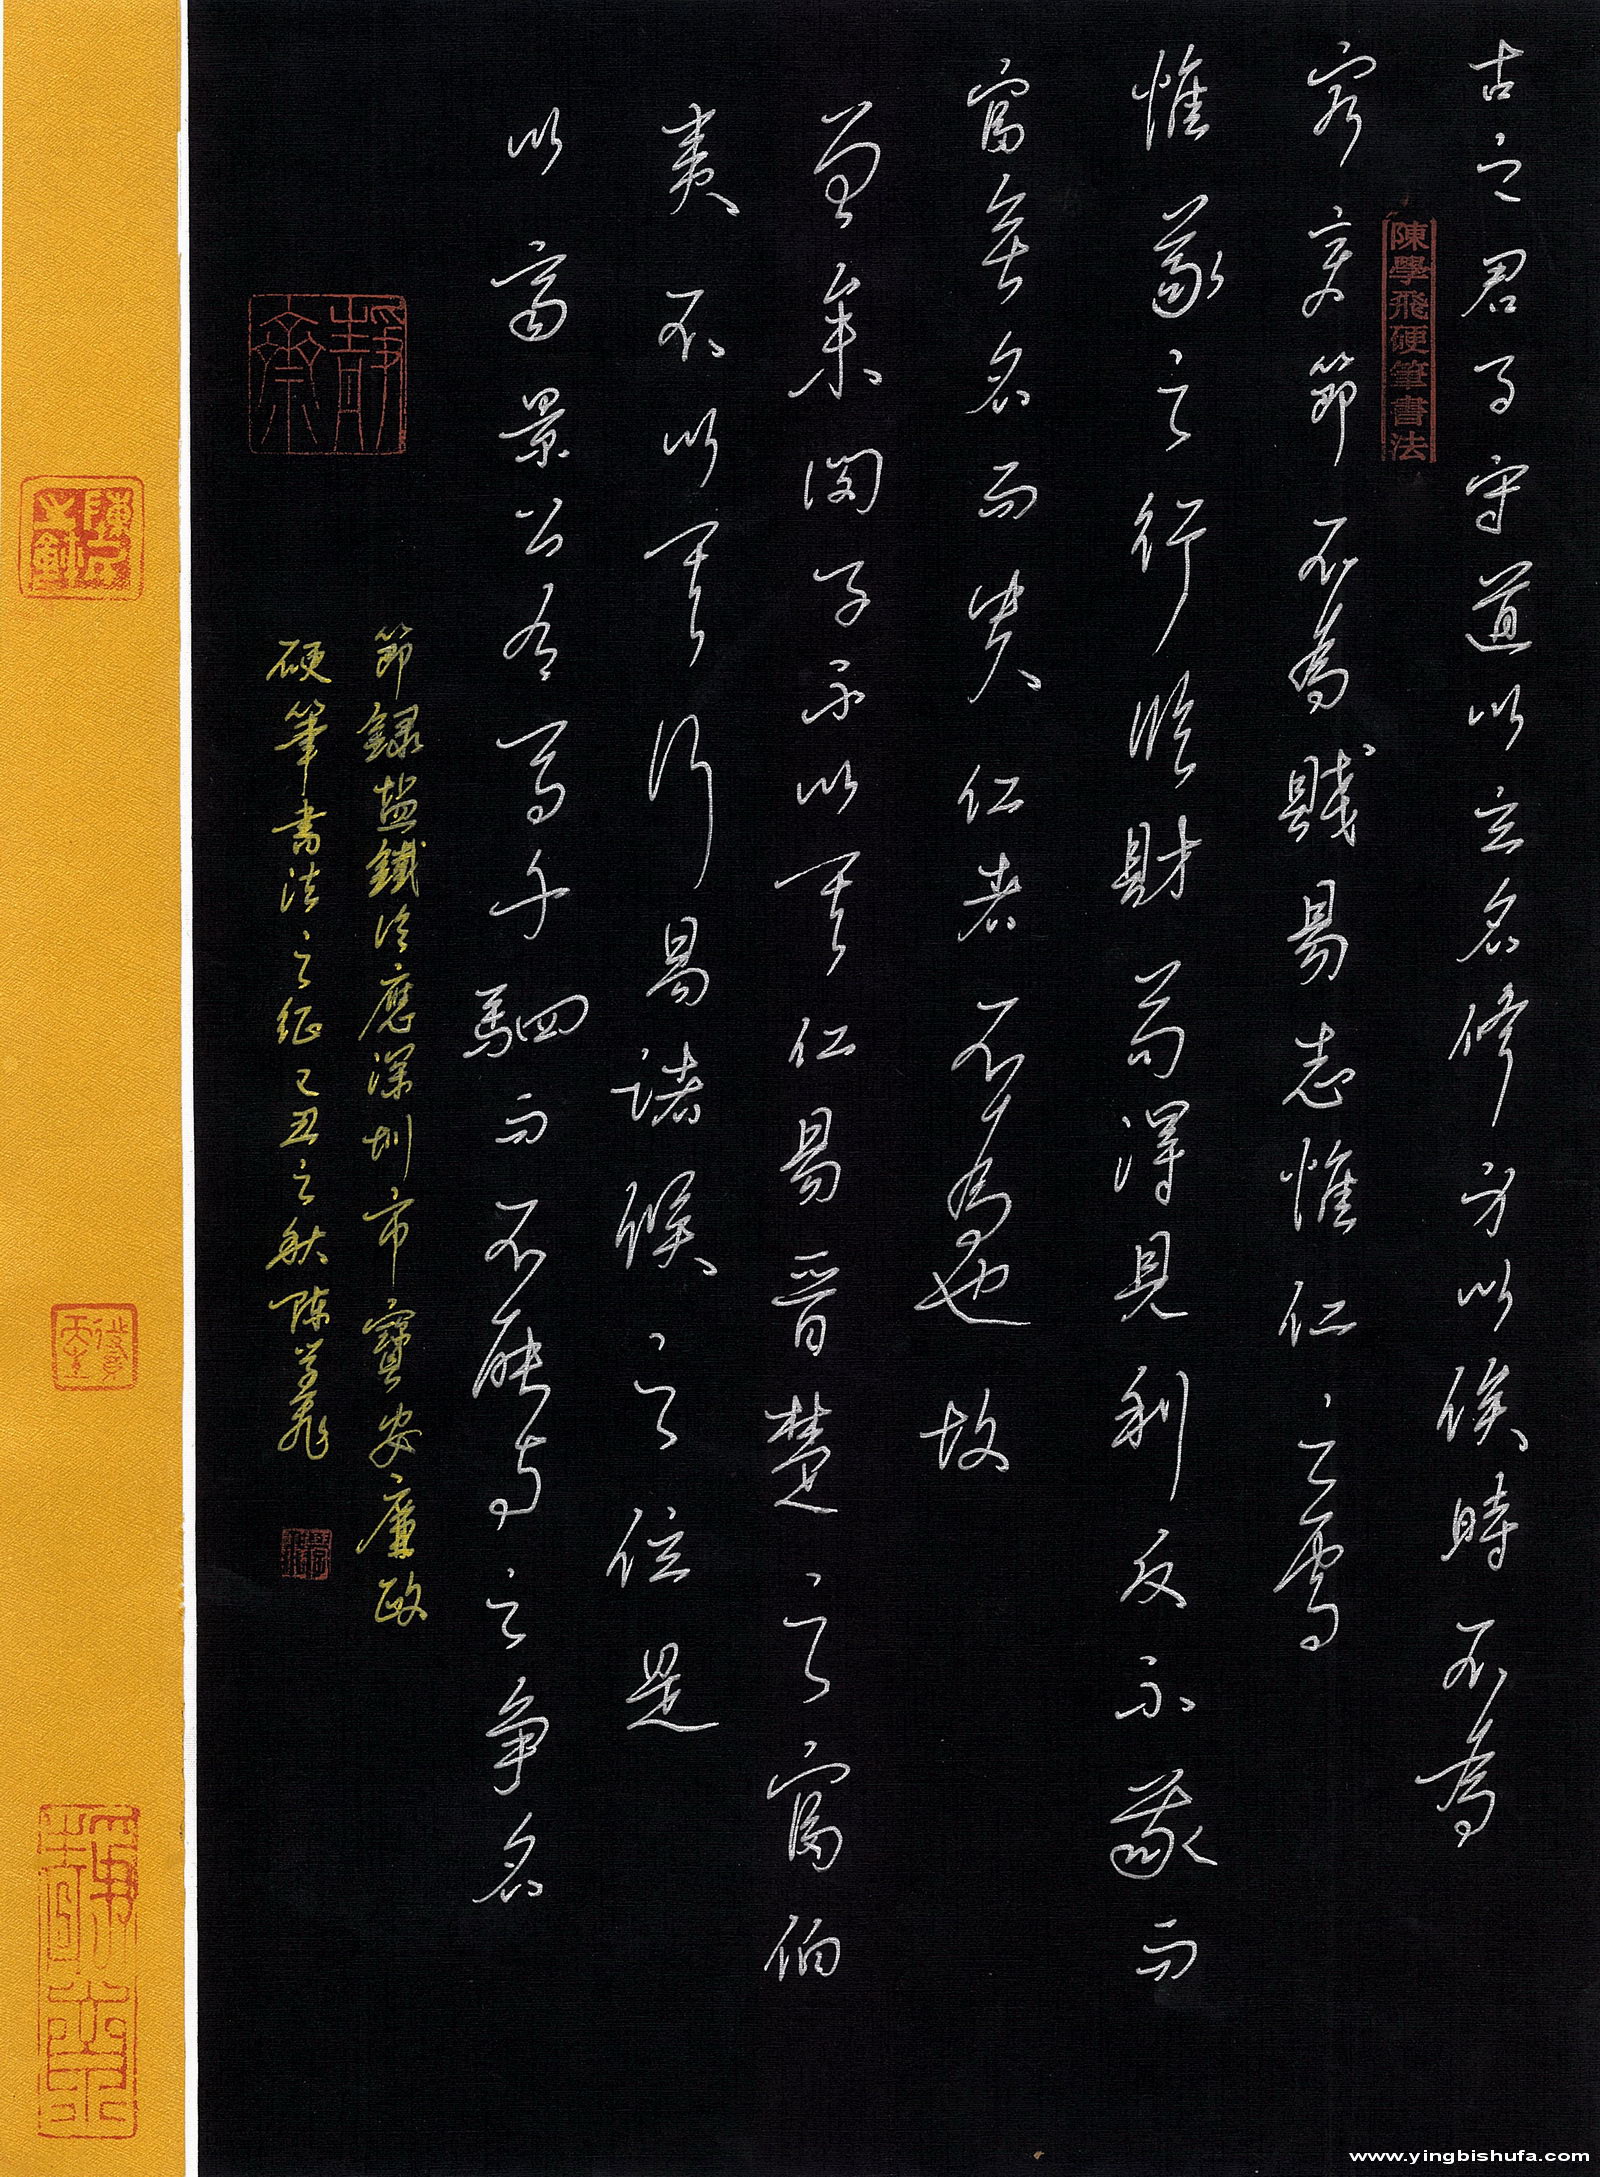 陳學飛硬筆書法
古之君子守道以立名修身以俟時不為
窮變節不為賤易志惟仁之處
惟義之行臨財苟得見利反不義而
富無名而貴仁者不為也故
曾參閔子不以其仁易晉楚之富伯
夷不以其行易諸侯之位是
以齊景公有馬千駟而不能與之爭名
節録盐鐵論應深圳市寶安廉政
硬筆書法之征己丑之秋陳學飛
靜齋
www.yingbishufa.com